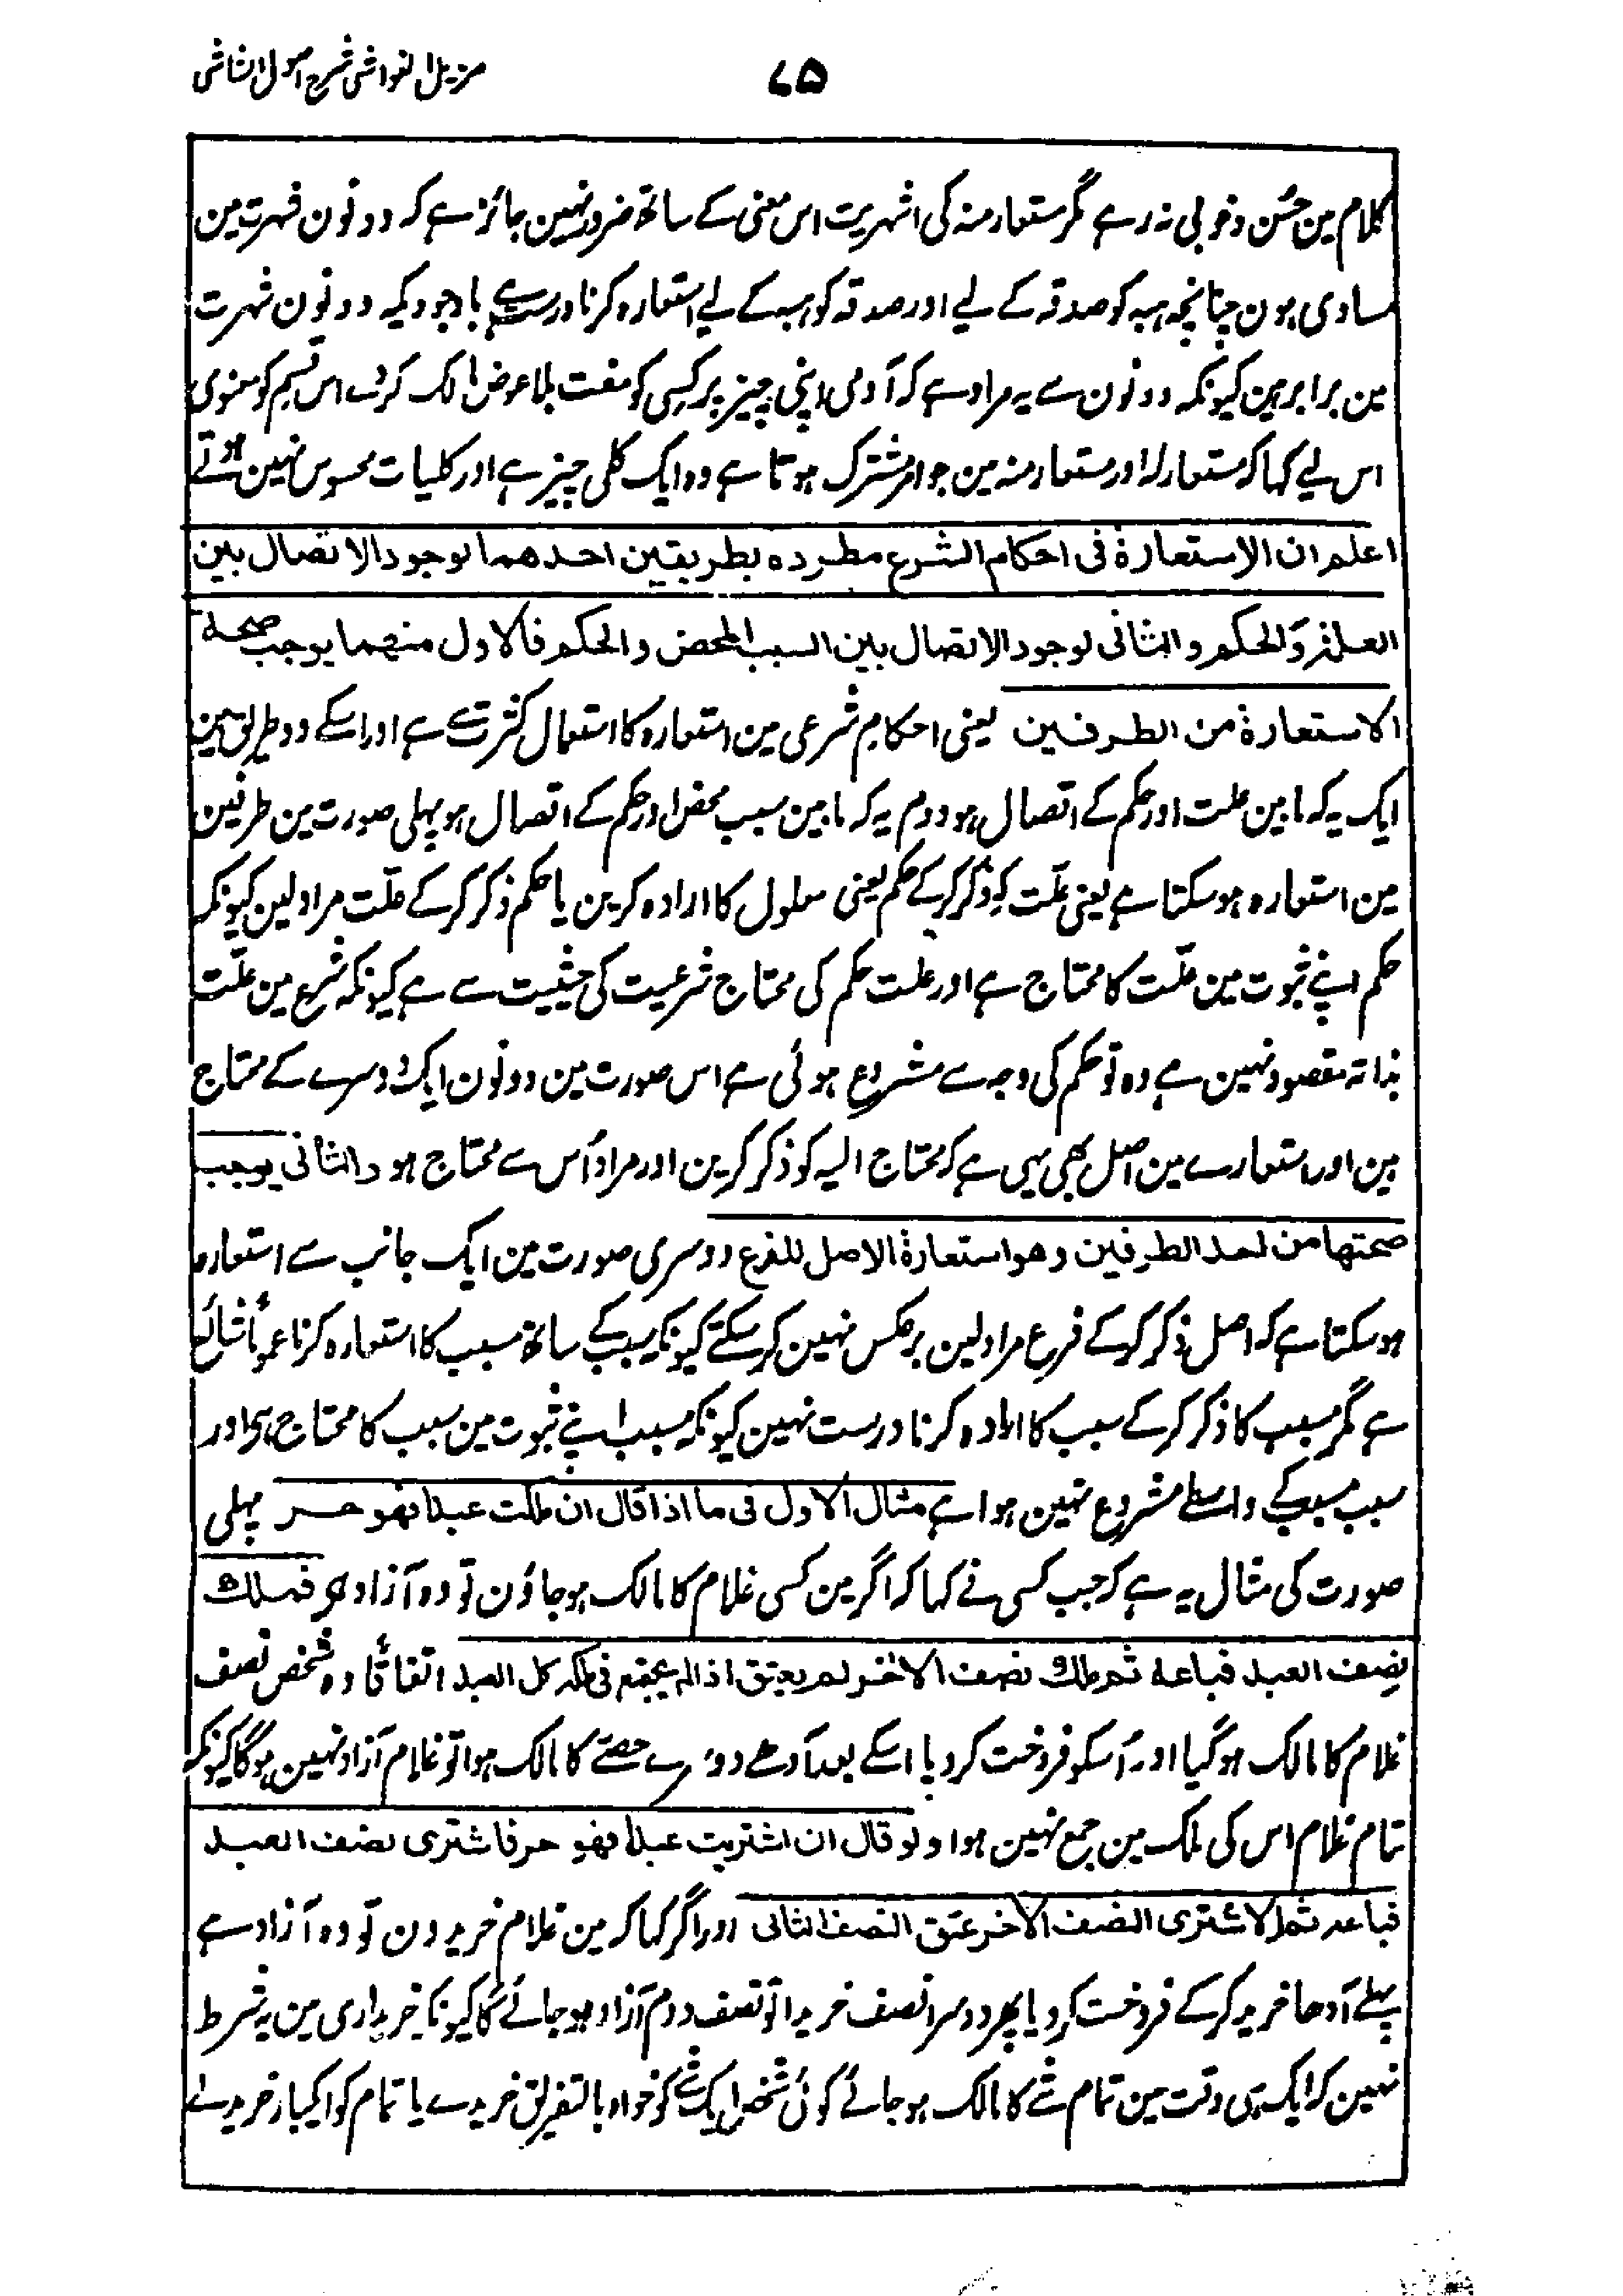 ۷۵ مزیل الغواشی شرح اصول الشاشی
کلام مین حسن و خوبی نہ رہے مگر مستعار منہ کی اشہریت اس معنی کے ساتھ ضرور نہین جائز ہے کہ دونون شہرت مین
مساوی ہون چنانچہ ہبہ کو صدقہ کے لیے اور صدقہ کو ہبہ کے لیے استعارہ کرنا درست ہے باوجودیکہ دونون شہرت
مین برابر ہین کیونکہ دونون سے یہ مراد ہے کہ آدمی اپنی چیز پر کسی کو مفت بلا عوض مالک کردے اس قسم کو معنوی
اس لیے کہا کہ مستعار لہ اور مستعار منہ مین جو امر مشترک ہوتا ہے وہ ایک کلی چیز ہے اور کلیات محسوس نہین ہوتے
اعلم ان الاستعارة فی احکام الشرع مطرده بطریقین احدهما لوجود الاتصال بین
العلة والحکم والثانی لوجود الاتصال بین السبب المحض والحکم فالاول منهما یوجب صحة
الاستعارة من الطرفین یعنی احکام شرعی مین استعارہ کا استعمال کثرت سے ہے اور اسکے دو طریق ہین
ایک یہ کہ مابین علت اور حکم کے اتصال ہو دوم یہ کہ مابین سبب محض اور حکم کے اتصال ہو پہلی صورت مین طرفین
مین استعارہ ہو سکتا ہے یعنی علّت کو ذکر کرکے حکم یعنی معلول کا ارادہ کرین یا حکم ذکر کرکے علّت مراد لین کیونکہ
حکم اپنے ثبوت مین علّت کا محتاج ہے اور علت حکم کی محتاج شرعیت کی حیثیت سے ہے کیونکہ شرع مین علّت
بذاتہ مقصود نہین ہے وہ تو حکم کی وجہ سے مشروع ہوئی ہے اس صورت مین دونون ایک دوسرے کے محتاج
ہین اور استعارے مین اصل بھی یہی ہے کہ محتاج الیہ کو ذکر کرین اور مراد اُس سے محتاج ہو والثانی یوجب
صحتها من احد الطرفین وهو استعارة الاصل للفرع دوسری صورت مین ایک جانب سے استعارہ
ہو سکتا ہے کہ اصل ذکر کرکے فرع مراد لین برعکس نہین کر سکتے کیونکہ سبب کے ساتھ مسبب کا استعارہ کرنا عموماً شائع
ہے مگر مسبب کا ذکر کرکے سبب کا ارادہ کرنا درست نہین کیونکہ مسبب اپنے ثبوت مین سبب کا محتاج ہے اور
سبب مسبب کے واسطے مشروع نہین ہوا ہے مثال الاول فی ما اذا قال ان ملکت عبدا فهو حر پہلی
صورت کی مثال یہ ہے کہ جب کسی نے کہا کہ اگر مین کسی غلام کا مالک ہو جاؤن تو وہ آزاد ہے فملك
نصف العبد فباعه ثم ملك نصف الاخر لم یعتق اذا لم یجتمع فی ملکه کل العبد اتفاقاً وہ شخص نصف
غلام کا مالک ہو گیا اور اُسکو فروخت کردیا اسکے بعد آدھے دوسرے حصّے کا مالک ہوا تو غلام آزاد نہین ہوگا کیونکہ
تمام غلام اس کی ملک مین جمع نہین ہوا ولو قال ان اشتریت عبدا فهو حر فاشتری نصف العبد
فباعه ثم اشتری النصف الاخر عتق النصف الثانی اور اگر کہا کہ مین غلام خریدون تو وہ آزاد ہے
پہلے آدھا خرید کرکے فروخت کردیا پھر دوسرا نصف خریدا تو نصف دوم آزاد ہو جائے گا کیونکہ خریداری مین یہ شرط
نہین کہ ایک ہی وقت مین تمام شے کا مالک ہو جائے کوئی شخص ایک شے کو خواہ بالتفریق خریدے یا تمام کو ایکبار خرید لے